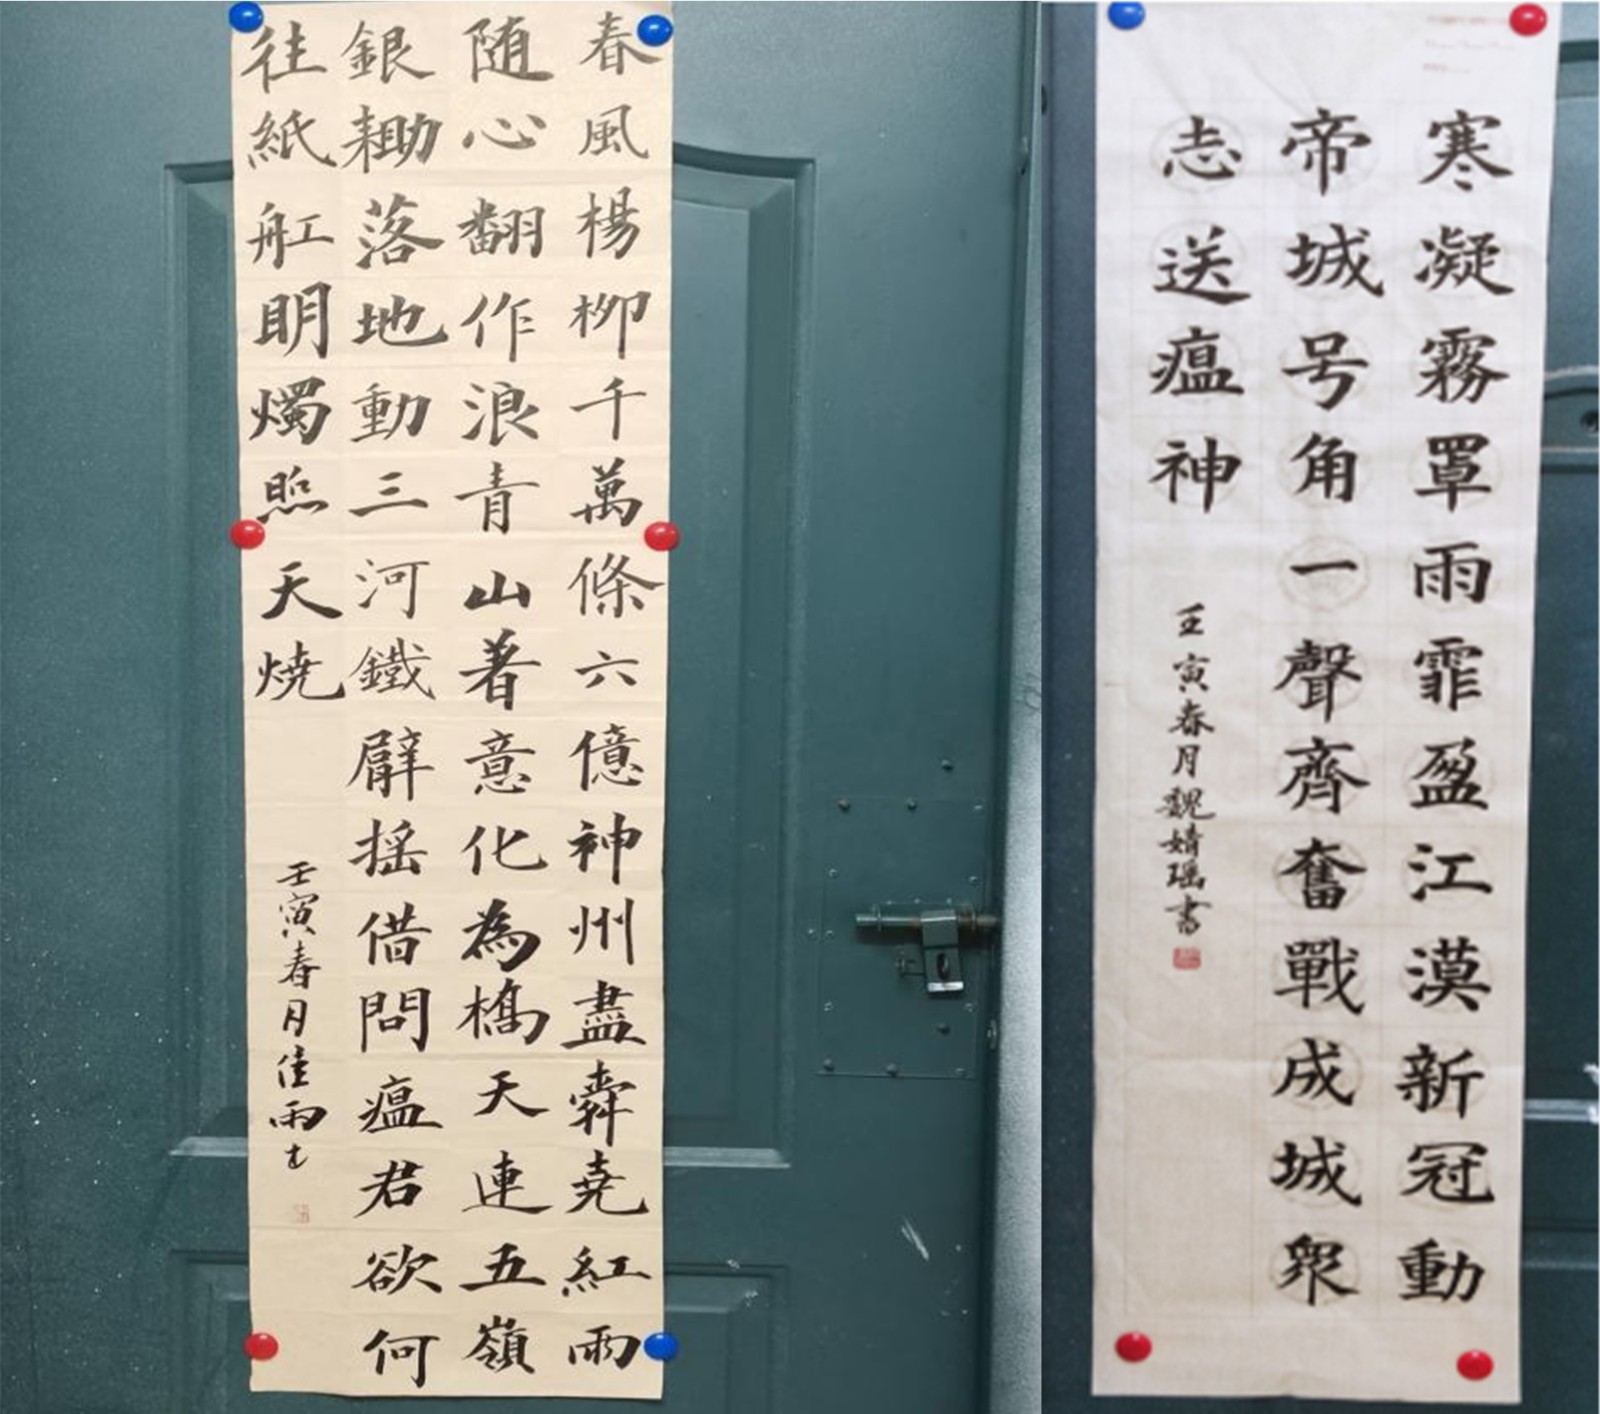 春風楊柳千萬條六億神州盡舜堯紅雨
随心翻作浪青山著意化為橋天連五嶺
銀耡落地動三河鐵臂摇借問瘟君欲何
往紙舡明燭照天燒
壬寅春月佳雨书
寒凝霧罩雨霏盈江漠新冠動
帝城号角一聲齊奮戰成城衆
志送瘟神
壬寅春月魏婧瑶書